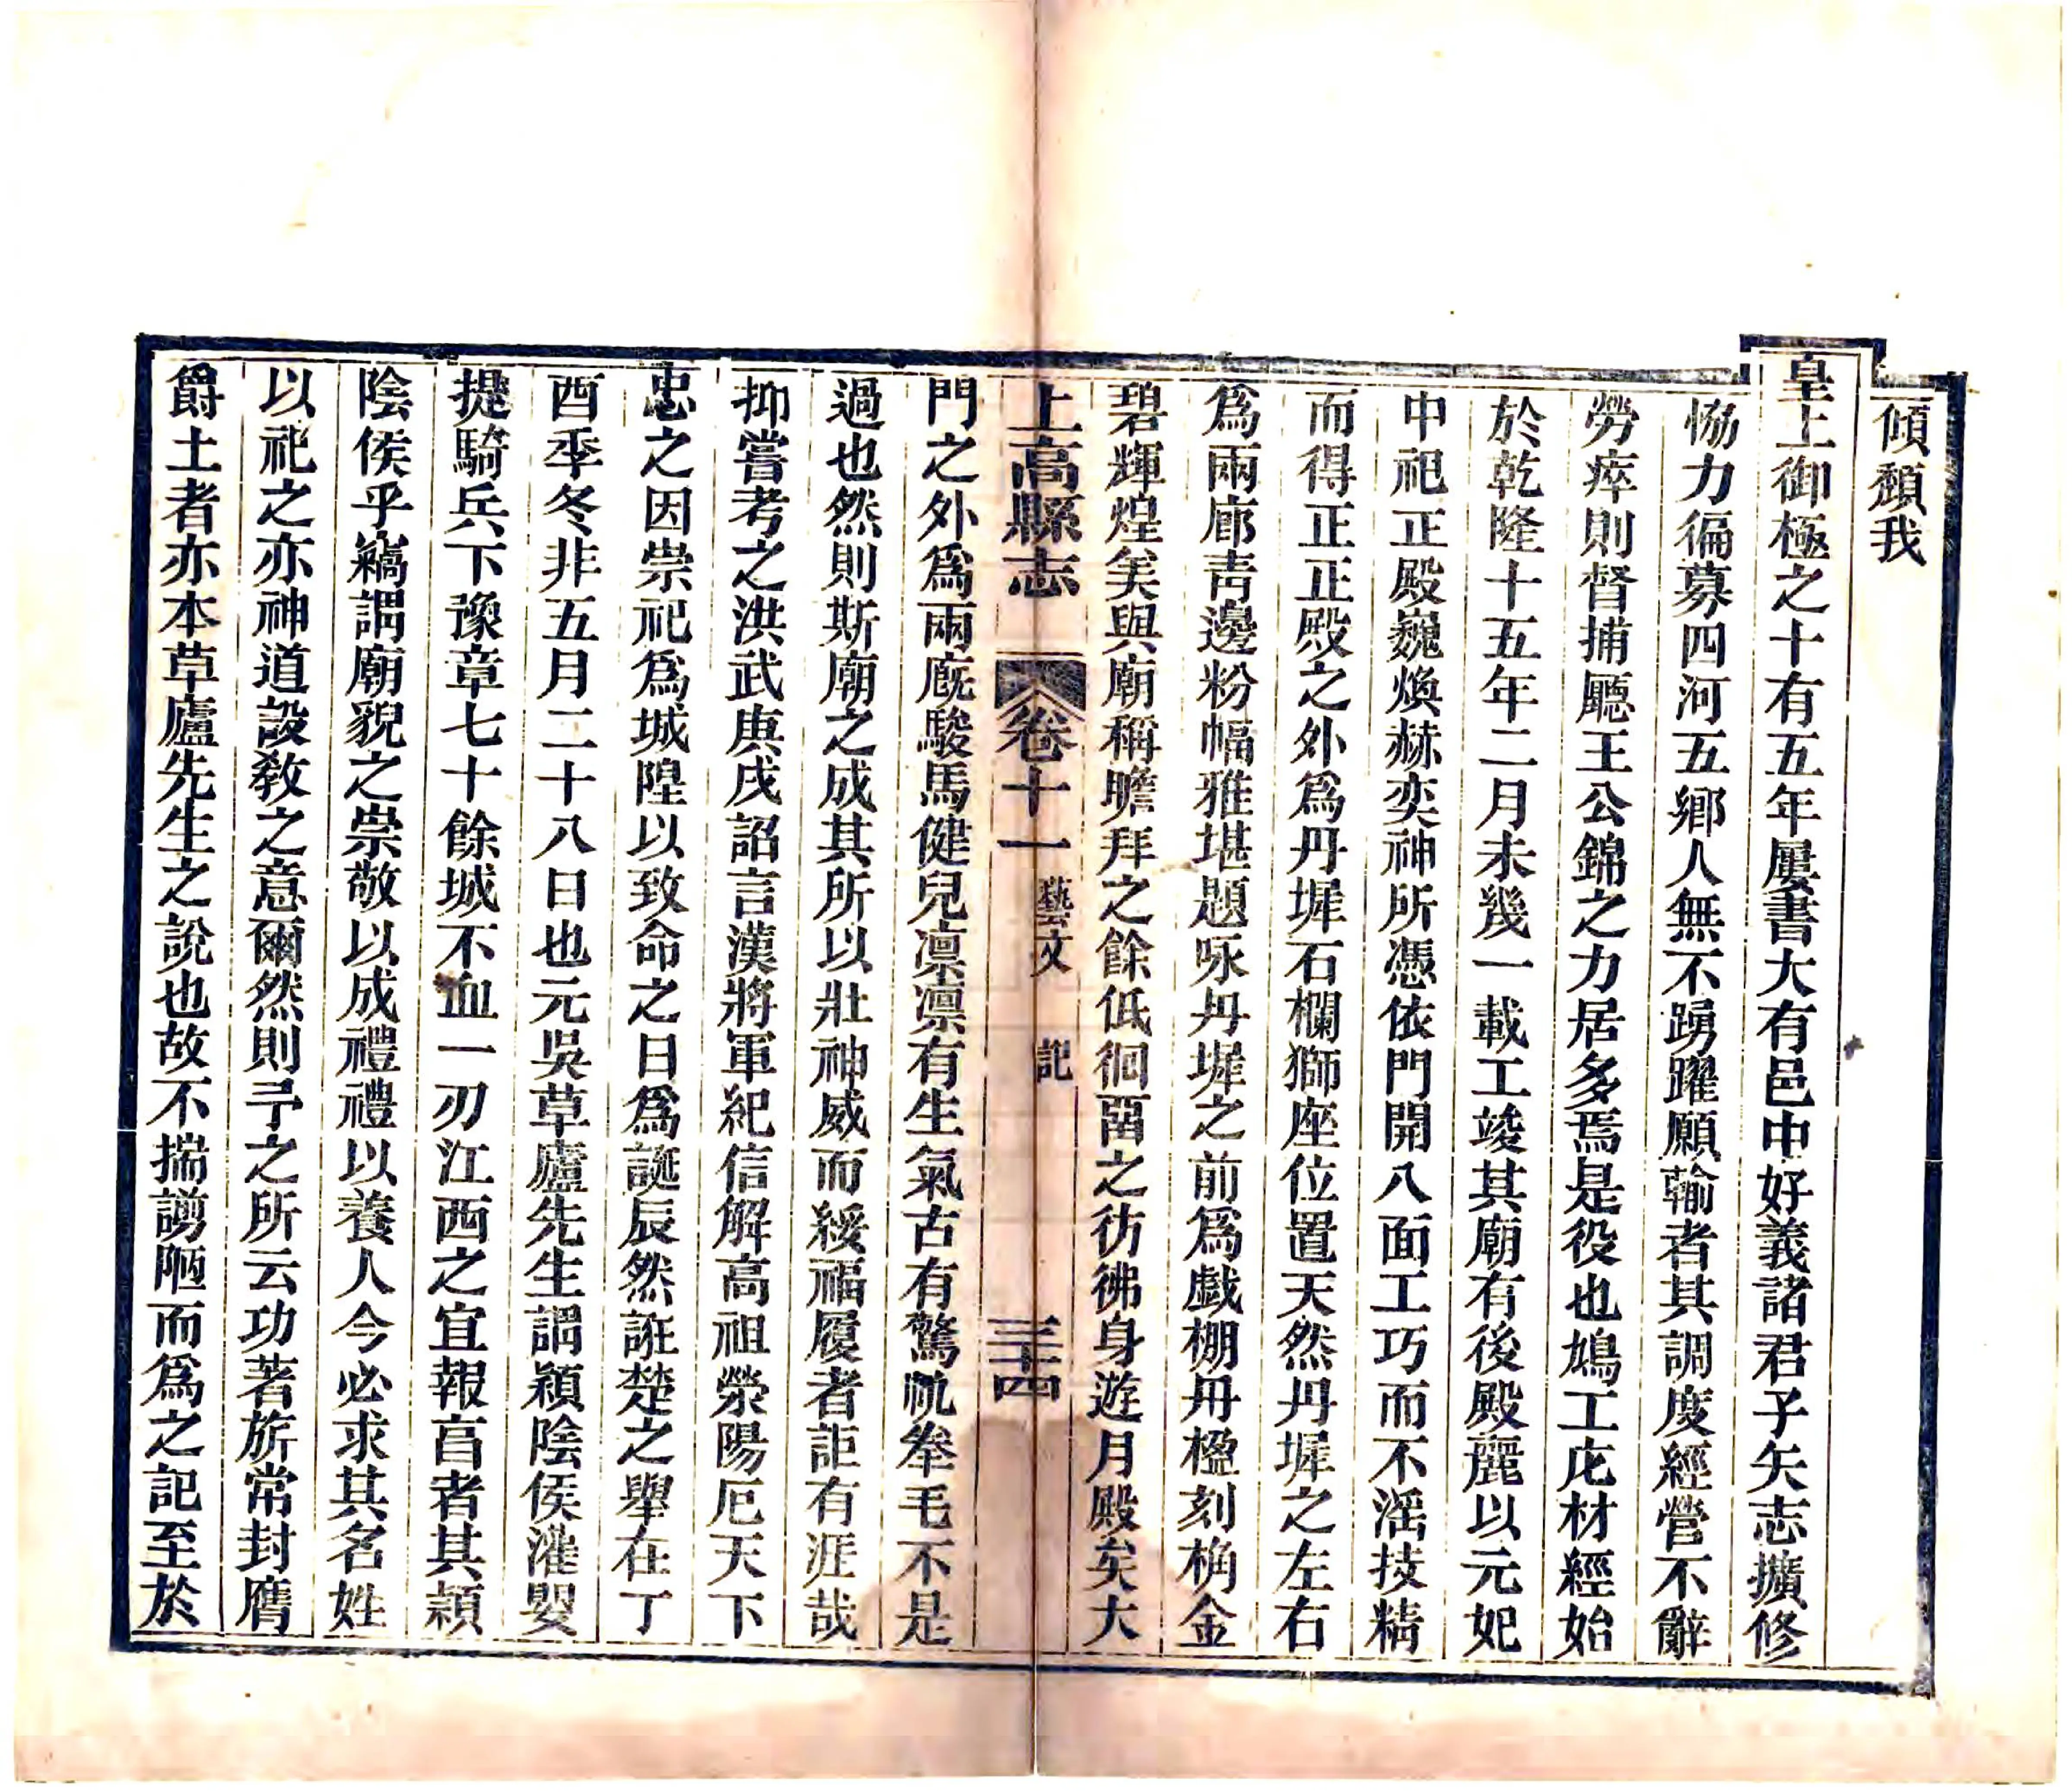 傾頹我
皇上御極之十有五年屢書大有邑中好義諸君子矢志擴修
恊力徧募四河五鄉人無不踴躍願輸者其調度經營不辭
勞瘁則督捕聽王公錦之力居多焉是役也鳩工庀材經始
於乾隆十五年二月未幾一載工竣其廟有後殿麗以元妃
中祀正殿巍煥赫奕神所憑依門開八面工巧而不滛技精
而得正正殿之外爲丹墀石欄獅座位置天然丹墀之左右
爲兩廊青邊粉幅雅堪題咏丹墀之前爲戯棚丹楹刻桷金
碧輝煌矣與廟稱瞻拜之餘低徊畱之彷彿身遊月殿矣大
上高縣志 卷十一 藝文 記 三十四
門之外爲兩廐駿馬健兒凛凛有生氣古有驚帆拳毛不是
過也然則斯廟之成其所以壯神威而綏福履者詎有涯哉
抑嘗考之洪武庚戌詔言漢將軍紀信解高祖滎陽厄天下
忠之因崇祀爲城隍以致命之日爲誕辰然誑楚之舉在丁
酉季冬非五月二十八日也元吳草廬先生謂潁陰侯灌嬰
提騎兵下豫章七十餘城不血一刃江西之宜報享者其潁
陰侯乎竊謂廟貎之崇敬以成禮禮以養人今必求其名姓
以祀之亦神道設教之意爾然則予之所云功著旂常封膺
爵土者亦本草廬先生之說也故不揣謭陋而爲之記至於